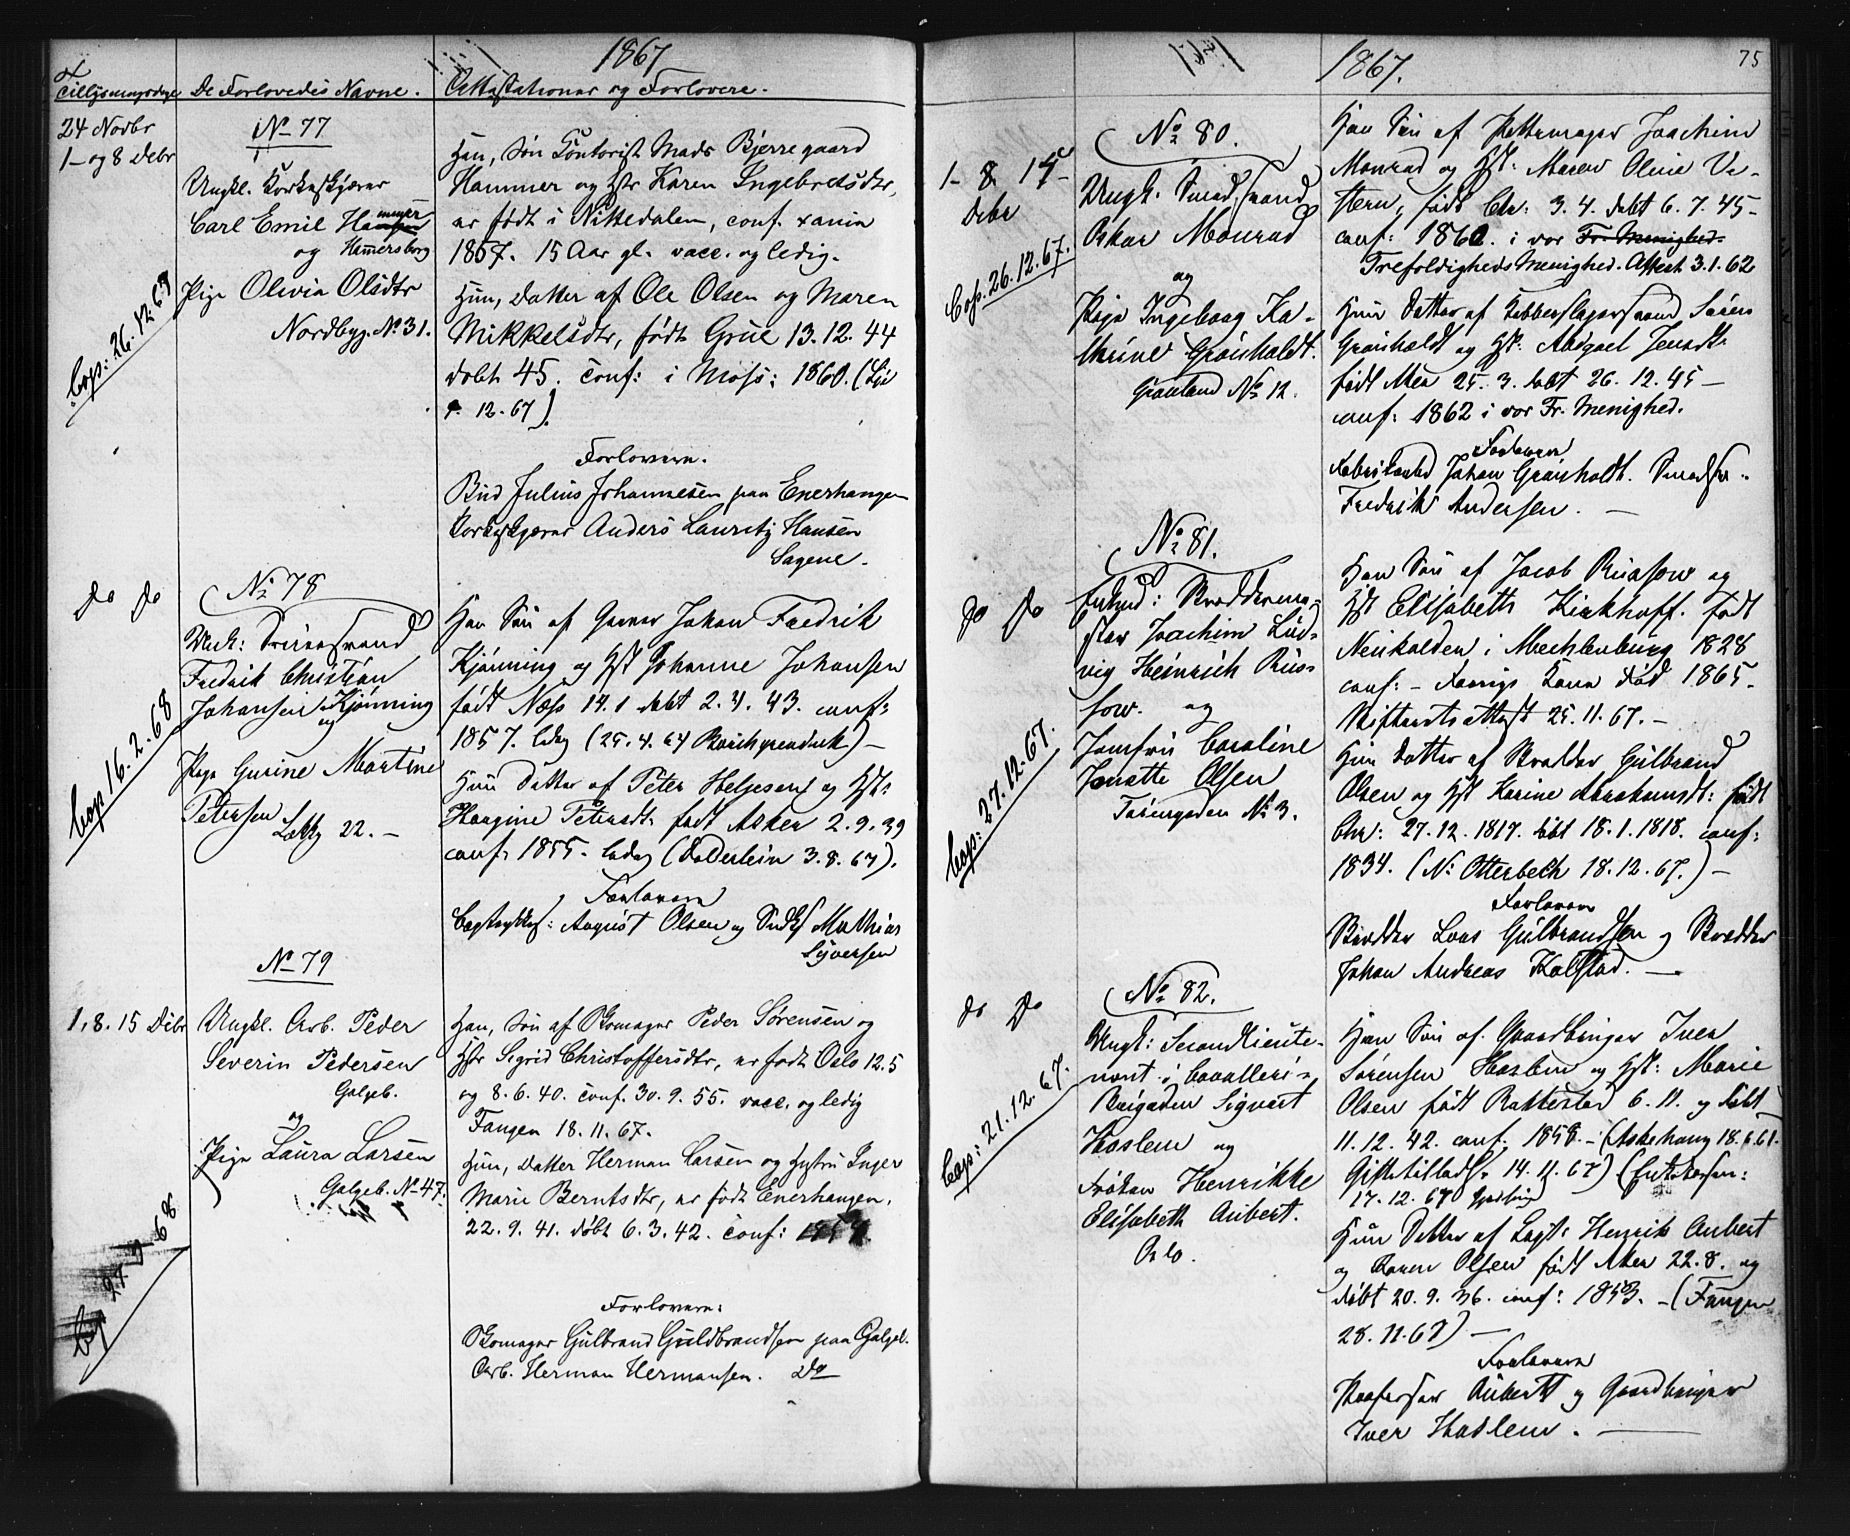 1867
Tillysningsdage
De Forlovedes Navne.
Attestationer og Forlovere.
24 Novbr
1- og 8 Debr
No 77
Ungkl. Korkeskjærer
Carl Emil Hammer
og Hammersborg
Pige Olivia Olsdtr
Nordbyg. No 31.
Cop: 26.12.67
Han, Søn Contorist Mads Bjerregaard
Hammer og Hstr Karen Ingebretsdtr,
er født i Nittedalen, conf. Xania
1857. 15 Aar gl. vacc. og ledig.
Hun, Datter af Ole Olsen og Maren
Mikkelsdtr, født Grue 13.12.44
døbt 45. conf: i Moss: 1860. (
12.67)
Forlovere.
Bud Julius Johannesen paa Enerhaugen
Korkeskjærer Anders Lauritz Hansen
Sagene.
do do
No 78
Ungk: Svend
Fredrik Christian
Johansen Kjønning
og
Pige Gurine Martine
Petersen
Lakkg 22. -
Cop 16.2.68
Han Søn af Garver Johan Fredrik
Kjønning og Hst Johanne Johansen
født Næs 14.1 døbt 2.4.43. conf:
1857. ledig (25.4.64 ) -
Hun Datter af Peter Helgesen og Hst:
Haagine Petersdt: født Asker 2.9.39
conf: 1855. ledig (Døderlein 3.8.67).
Forlovere
Bogtrykkes: August Olsen og Snedks Mathias
Syversen
1, 8. 15 Debr
No 79
Ungkl. Arb. Peder
Severin Pedersen
Galgeb.
og
Pige Laura Larsen
Galgeb. No 47.
Cop 68
Han, Søn af Skomager Peder Sørensen og
Hstr Sigrid Christoffersdtr, er født Oslo 12.5
og 8.6.40. conf. 30.9.55. vacc. og ledig
Fangen 18.11.67.
Hun, Datter Herman Larsen og Hustru Inger
Marie Berntsdtr, er født Enerhaugen.
22.9.41. døbt 6.3.42. conf:
Forlovere:
Skomager Gulbrand Guldbrandsen paa Galgeb.
Arb. Herman Hermansen. Do
1867.
75
1- 8 15
Debr
No 80.
Ungk: Smedsvend
Oskar Monrad
og
Pige Ingeborg Ka-
thrine Grønholdt.
Grønland No 12.
Cop. 26.12.67.
Han Søn af Pottemager Joachim
Monrad og Hst: Maren Oline Ve-
stern, født Chr: 3.4. døbt 6.7.45-
conf: 1860. i vor Fr. Menighed.
Trefoldigheds Menighed. Attest 3.1.62
Hun Datter af Kobberslagersvend Søren
Grønholdt og Hst. Abigael Jensdtr
født Aker 25.3. døbt 26.12.45 -
conf: 1862 i vor Fr. Menighed.
Forlovere
Fabrikarbd Johan Grønholdt. Smedsv.
Fredrik Andersen. -
do do
No 81.
Enkmd: Skreddermes-
ster Joachim Lud-
vig Heinrich Rus-
sow. og
Jomfru Caroline
Jenette Olsen
No 3.
Cop: 27.12.67.
Han Søn af Jacob Russow og
Hst Elisabeth Kirkhoff. født
Neukalden i Mechlenburg 1828
conf: - Forrige Kone død 1865-
Skifteretsattest 25.11.67. -
Hun Datter af Skredder Gulbrand
Olsen og Hst Karine Abrahamsdt: født
Chr: 27.12.1817. døbt 18.1.1818. conf:
1834. (N: Otterbech 18.12.67.) -
Forlovere
Skredder Lars Gulbrandsen og Skredder
Johan Andreas Kolstad. -
do do
No 82.
Ungk: Secondlieute-
nant i Cavalleri-
Brigaden Sigvart
Haslem og
Frøken Henrikke
Elisabeth Aubert.
Oslo.
Cop: 21.12.67.
Han Søn af Gaardbruger Iver
Sørensen Haslem og Hst: Marie
Olsen født Rakkestad 6.11. og døbt
11.12.42. conf: 1858. - (Askehoug 18.6.61.
Giftetilladls. 14.11.67) (
17.12.67
Hun Datter af Henrik Aubert
og Karen Olsen født Aker 22.8. og
døbt 20.9.36. conf: 1853. - (Fangen
28.11.67) -
Forlovere
Professor Aubert og Gaardbruger
Iver Haslem. -